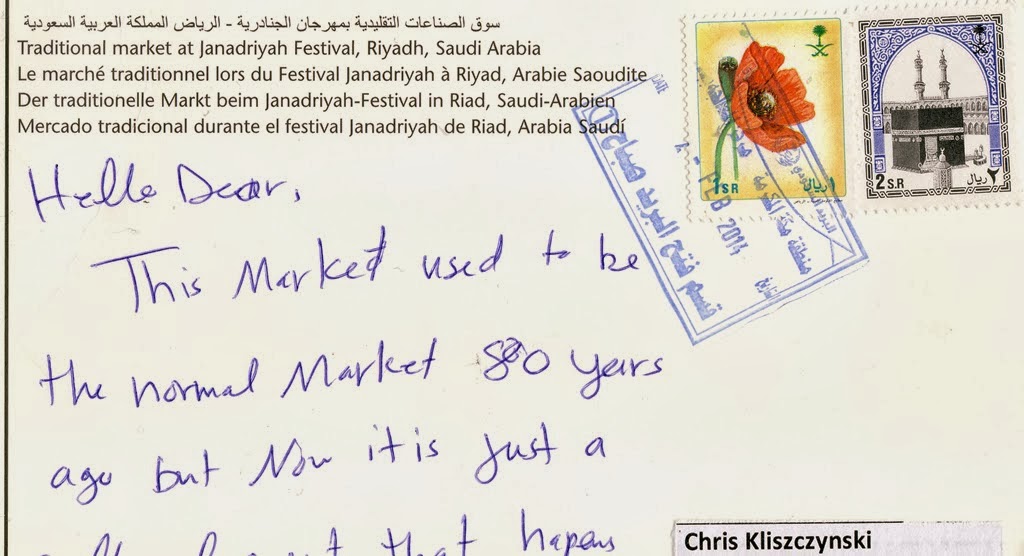 سوق الصناعات التقليدية بمهرجان الجنادرية - الرياض المملكة العربية السعودية
Traditional market at Janadriyah Festival, Riyadh, Saudi Arabia
Le marché traditionnel lors du Festival Janadriyah à Riyad, Arabie Saoudite
Der traditionelle Markt beim Janadriyah-Festival in Riad, Saudi-Arabien
Mercado tradicional durante el festival Janadriyah de Riad, Arabia Saudí
1 S.R ١ ريال
2 S.R ٢ ريال
DATE
FEB 2014
منطقة مكة المكرمة
تاريخ
Hello Dear,
This Market used to be
the normal Market 80 years
ago but Now it is just a
that hapens
Chris Kliszczynski